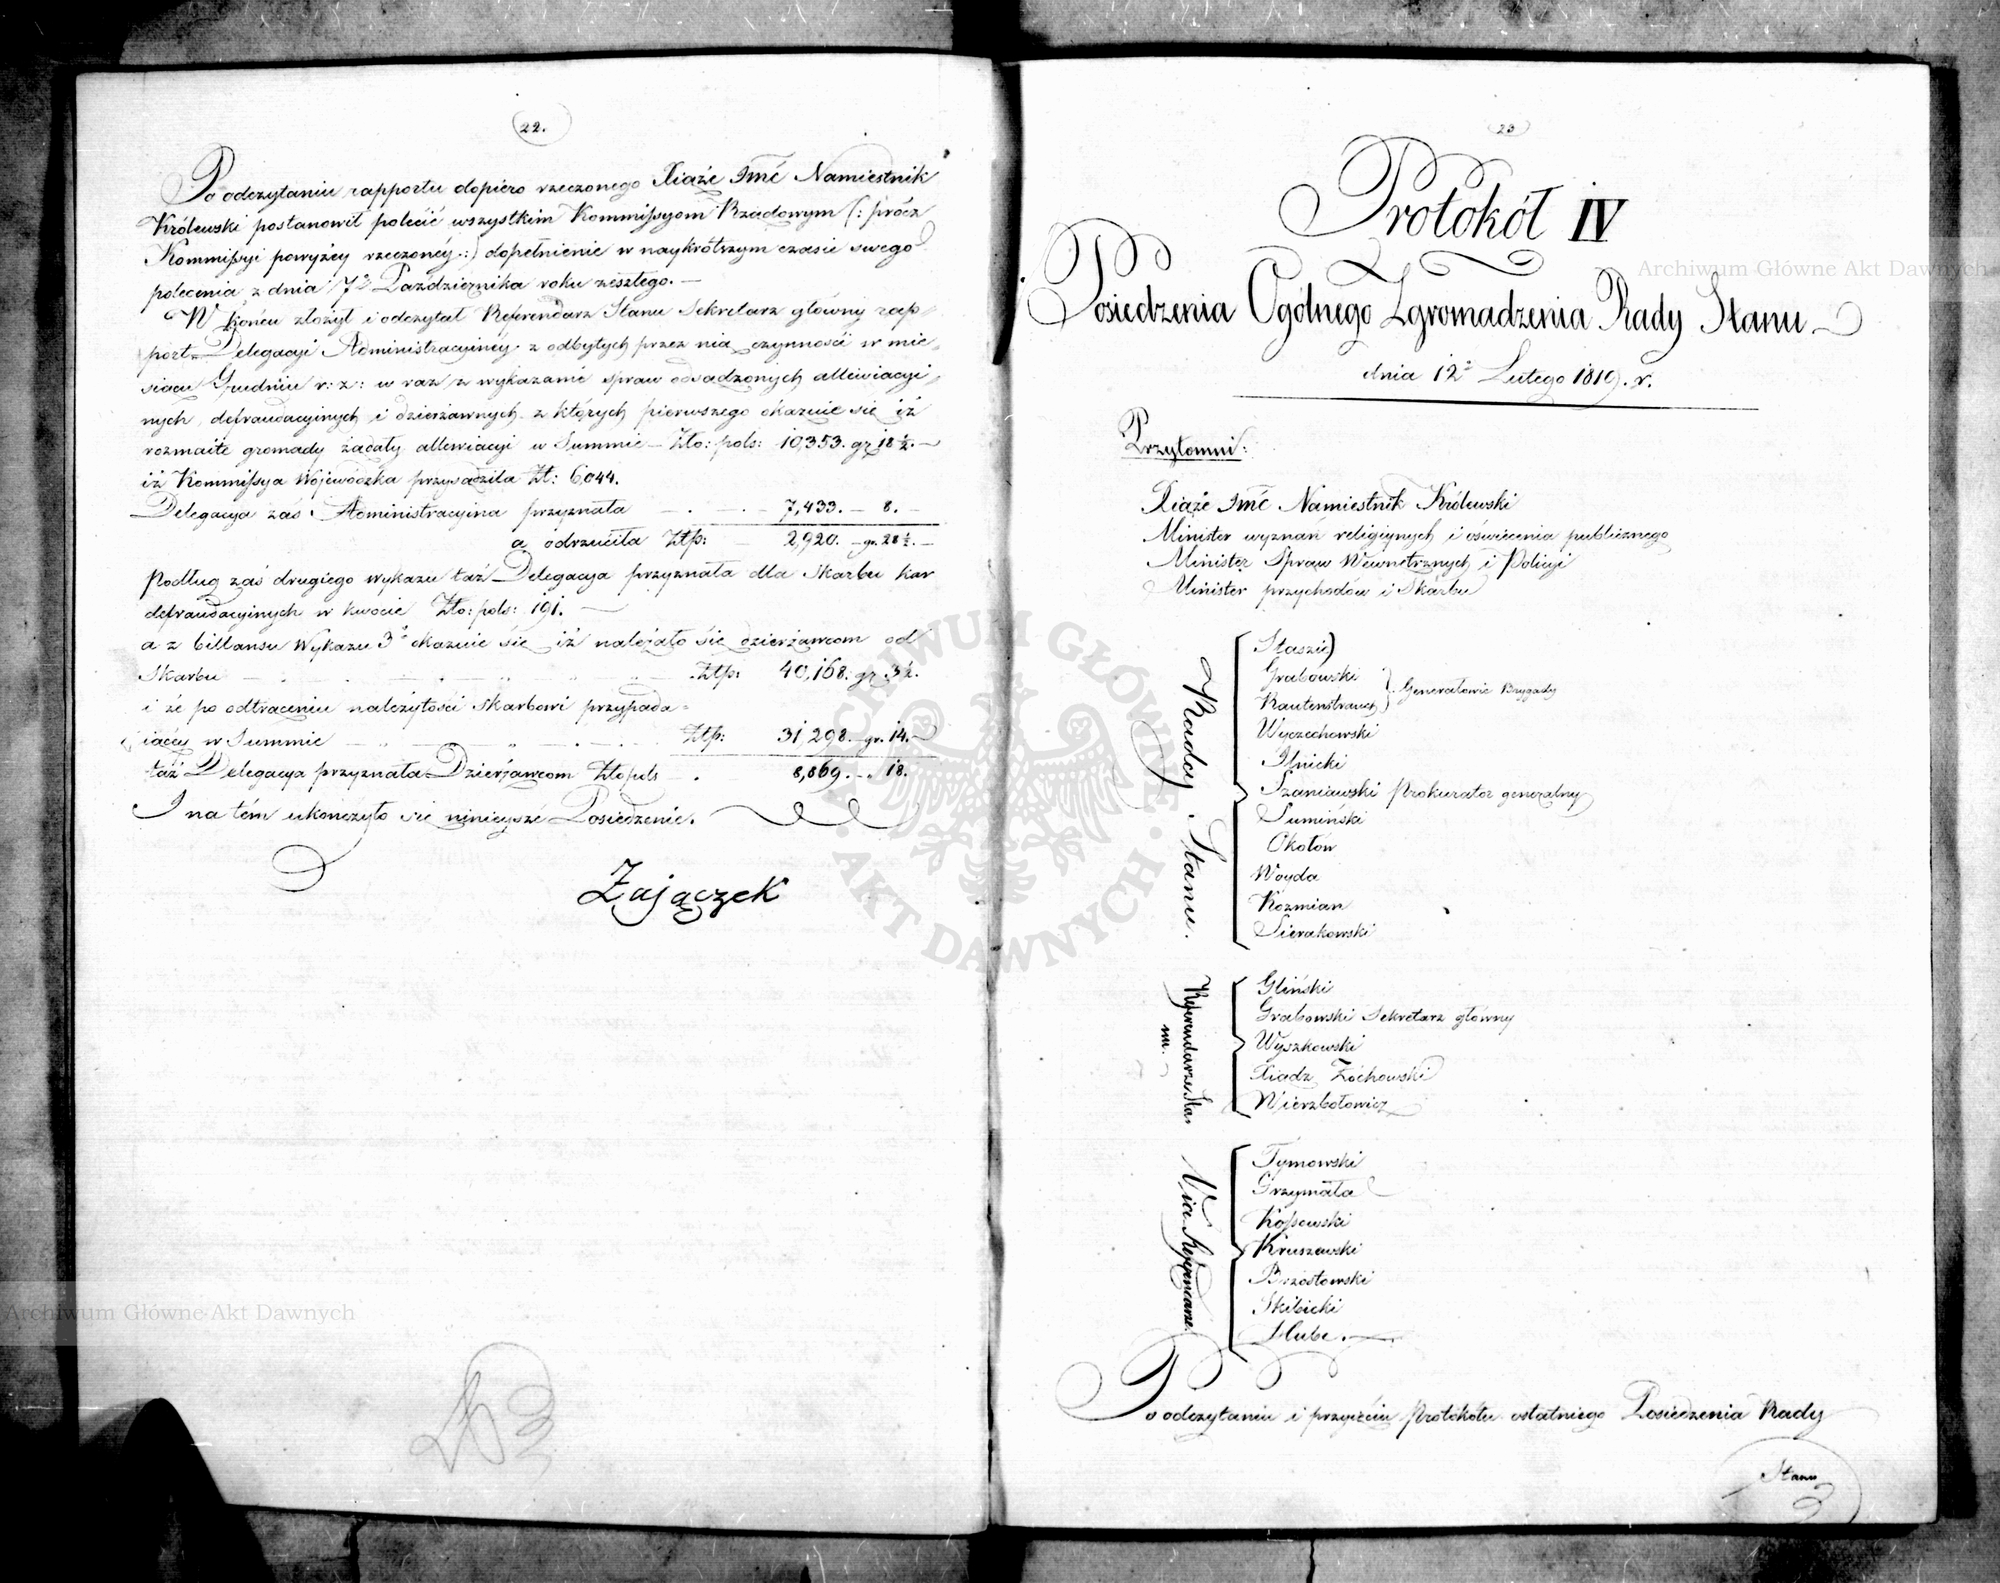 22.
Po odczytaniu rapportu dopiero rzeczonego Xiąże Jmć Namiestnik
Królewski postanowił polecić wszystkim Kommissyom Rządowym (: prócz
Kommissyi powyżey rzeczonéy :) dopełnienie w naykrótszym czasie swego
polecenia z dnia 17° Października roku zeszłego. —
W końcu złożył i odczytał Referendarz Stanu Sekretarz główny rap-
port Delegacyi Administracyinéy z odbytych przez nią czynności w mie-
siącu Grudniu r: z: w raz z wykazami spraw osądzonych allewiacyi-
nych, defraudacyinych i dzierżawnych z których pierwszego okazuie się iż
rozmaite gromady żądały allewiacyi w Summie — Zło: pols: 10,353. gr 18½. —
iż Kommissya Wojewódzka przysądziła Zł: 6,044.
Delegacya zaś Administracyina przyznała — . — . — 7,433. — 8. —
a odrzuciła Złp: — 2,920. — gr. 28½. —
Podług zaś drugiego wykazu taż Delegacya przyznała dla Skarbu kar
defraudacyinych w kwocie Zło: pols: 191. —
a z billansu Wykazu 3° okazuie się iż należało się dzierżawcom od
Skarbu — Złp: 40,168. gr 3½.
i że po odtrąceniu należytości Skarbowi przypada-
iącéy w Summie — Złp: 31,298. — gr. 14. —
taż Delegacya przyznała Dzierżawcom Zło pols — . 8,869. — " 18.
I na tém ukończyło się ninieysze Posiedzenie.
Zajączek
23
Protokół IV
Posiedzenia Ogólnego Zgromadzenia Rady Stanu
dnia 12° Lutego 1819. r.
Przytomni:
Xiąże Jmć Namiestnik Królewski
Minister wyznań religiynych i oświecenia publicznego
Minister Spraw Wewnętrznych i Policyi
Minister przychodów i Skarbu
Radcy Stanu.
Staszic
Grabowski
Rautenstrauch } Generałowie Brygady
Wyczechowski
Ilnicki
Szaniawski Prokurator generalny
Sumiński
Okołow
Woyda
Koźmian
Sierakowski
Referendarze Sta-
nu.
Gliński
Grabowski Sekretarz główny
Wyszkowski
Xiądz Zochowski
Wierzbołowicz
Vice Referendarze.
Tymowski
Grzymała
Kossowski
Kruszewski
Brzostowski
Skibicki
Hube.
Po odczytaniu i przyięciu Protokołu ostatniego Posiedzenia Rady
Stanu
Archiwum Główne Akt Dawnych
Archiwum Główne Akt Dawnych
ARCHIWUM GŁÓWNE · AKT DAWNYCH ·